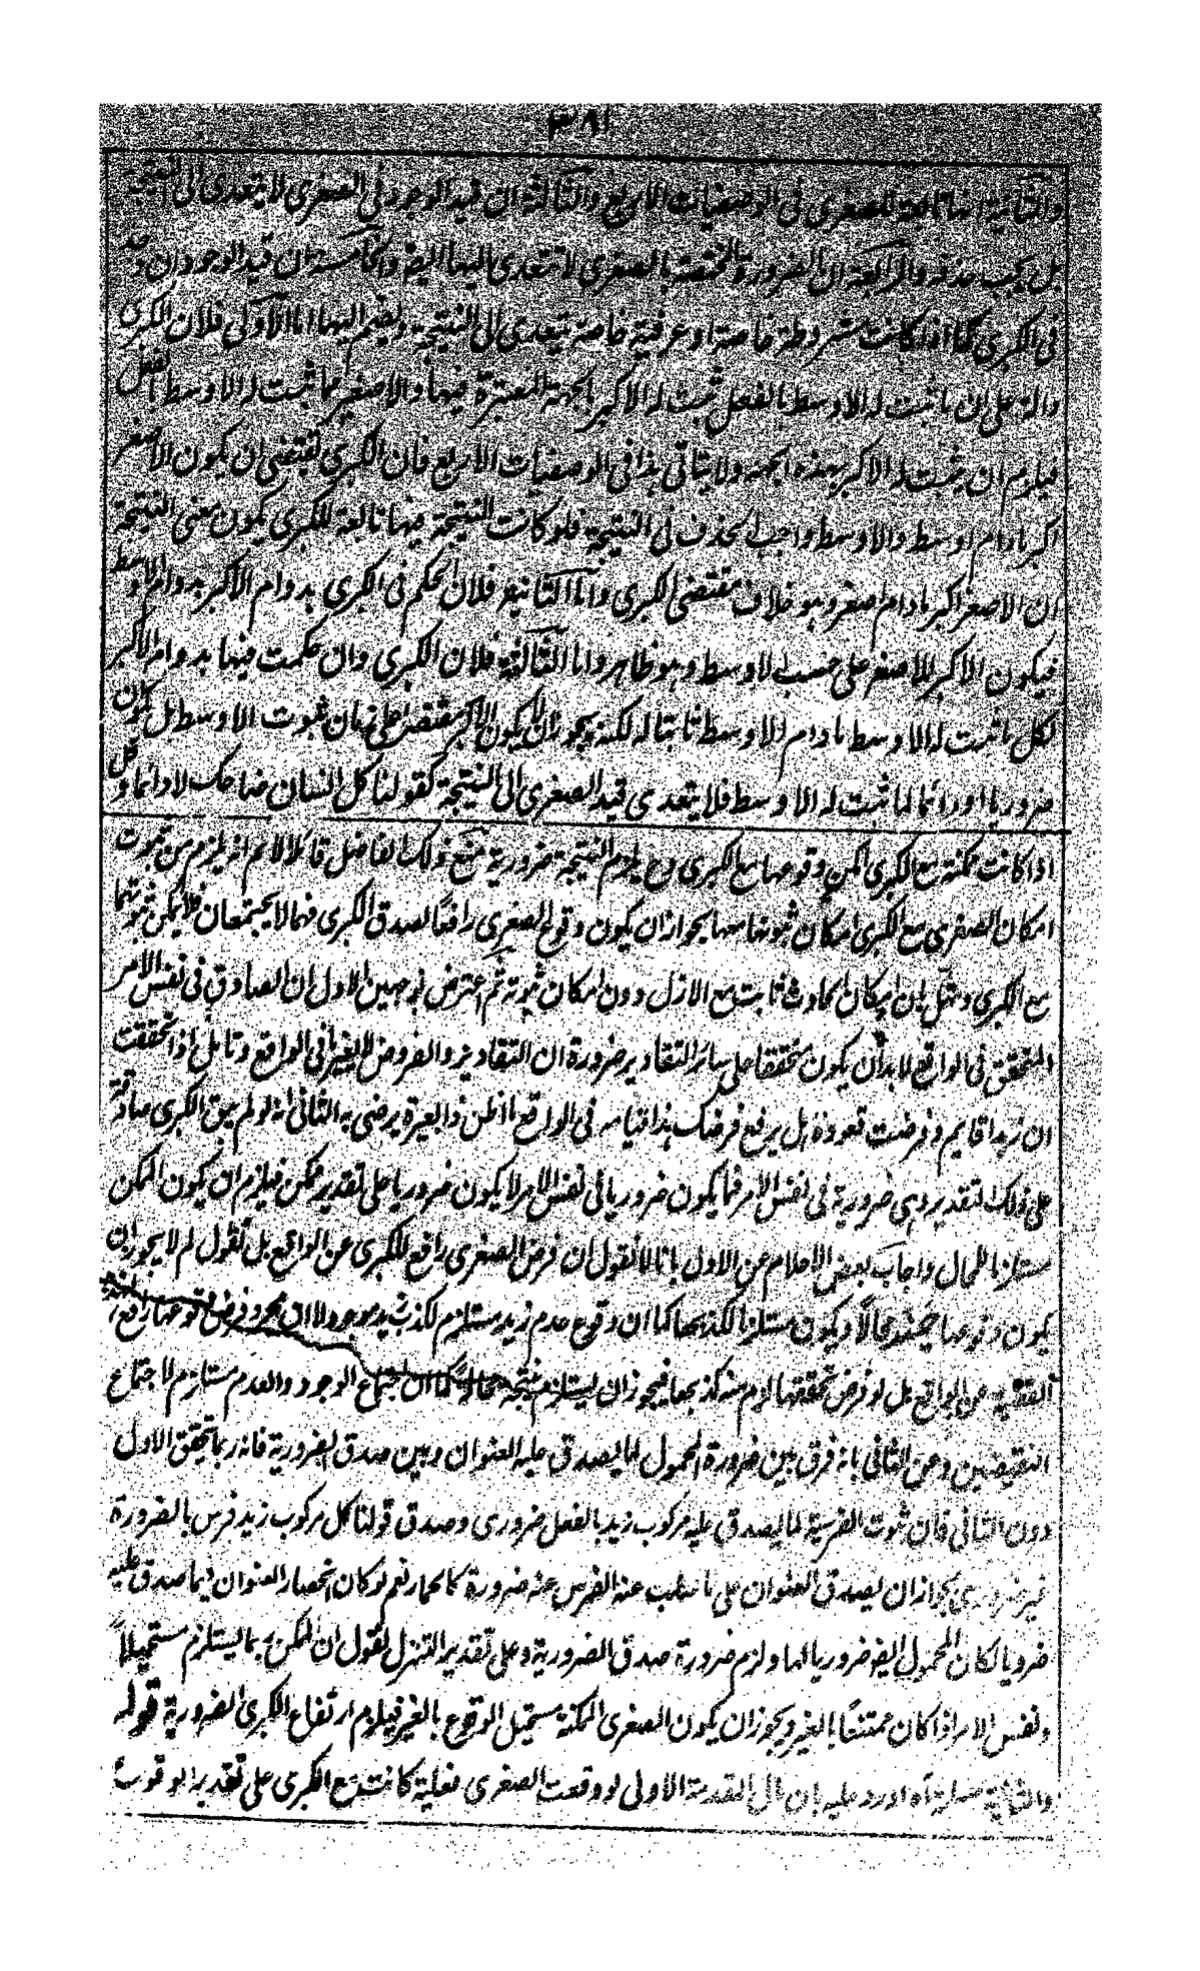 ٣٨١
والثانية انها تابعة للصغرى فى الوصفيات الاربع والثالثة ان قيد الوجود فى الصغرى لا يتعدى الى النتيجة
بل يجب حذفه والرابعة ان الضرورة المختصة بالصغرى لا تتعدى اليها ايضا والخامسة ان قيد الوجود ان وجد
فى الكبرى كما اذا كانت مشروطة خاصة او عرفية خاصة يتعدى الى النتيجة وينضم اليها اما الاولى فلان الكبرى
دالة على ان ما ثبت له الاوسط بالفعل ثبت له الاكبر بالجهة المعتبرة فيها والاصغر مما ثبت له الاوسط بالفعل
فيلزم ان يثبت له الاكبر بهذه الجهة ولا يتاتى هذا فى الوصفيات الاربع فان الكبرى تقتضى ان يكون الاصغر
اكبر مادام اوسط والاوسط واجب الحذف فى النتيجة فلو كانت النتيجة فيها تابعة للكبرى يكون معنى النتيجة
ان الاصغر اكبر مادام اصغر وهو خلاف مقتضى الكبرى واما الثانية فلان الحكم فى الكبرى بدوام الاكبر بدوام الاوسط
فيكون الاكبر للاصغر على حسب الاوسط وهو ظاهر واما الثالثة فلان الكبرى وان حكمت فيها بدوام الاكبر
لكل ما ثبت له الاوسط مادام الاوسط ثابتا له لكنه يجوز ان لا يكون الاكبر مقتصرا على زمان ثبوت الاوسط بل يكون
ضروريا او دائما لما ثبت له الاوسط فلا يتعدى قيد الصغرى الى النتيجة كقولنا كل انسان ضاحك لا دائما وكل
اذا كانت ممكنة مع الكبرى امكن وقوعها مع الكبرى وح يلزم النتيجة ضرورية منع ذلك الفاضل قائلا لا نم انه يلزم من ثبوت
امكان الصغرى مع الكبرى امكان ثبوتها معها بجواز ان يكون وقوع الصغرى رافعا لصدق الكبرى فهما لا يجتمعان فلا يمكن ثبوتها
مع الكبرى ومثل بان امكان الحادث ثابت مع الازل دون امكان ثبوته ثم اعترض بوجهين الاول ان الصادق فى نفس الامر
المتحقق فى الواقع لا بد ان يكون متحققا على سائر التقادير ضرورة ان التقادير والفروض لا يغير ما فى الواقع وتامل اذا تحققت
ان زيدا قايم وفرضت قعوده هل يرفع فرضك هذا قيامه فى الواقع ما اظن ذا بصيرة يرضى به الثانى انه لو لم يبق الكبرى صادقة
على ذلك التقدير وهى ضرورية فى نفس الامر فما يكون ضروريا فى نفس الامر لا يكون ضروريا على تقدير ممكن فيلزم ان يكون الممكن
مستلزما للمحال واجاب بعض الاعلام عن الاول بانا لا نقول ان فرض الصغرى رافع للكبرى عن الواقع بل نقول لم لا يجوز ان
يكون وقوعها محالا ويكون مستلزما لكذبها كما ان وقوع عدم زيد مستلزم لكذب زيد موجود لا ان مجرد فرض وقوعها رافع
القضية عن الواقع بل لو فرض تحققها لزم منه كذبها فيجوز ان يستلزم نتيجة محالا كما ان اجتماع الوجود والعدم مستلزم لاجتماع
النقيضين وعن الثانى بانه فرق بين ضرورة المحمول لما يصدق عليه العنوان وبين صدق الضرورية فانه ربما تحقق الاول
دون الثانى فان ثبوت الفرسية لما يصدق عليه مركوب زيد بالفعل ضرورى وصدق قولنا كل مركوب زيد فرس بالضرورة
غير ضرورى بجواز ان يصدق العنوان على ما سلب عنه الفرس عنه ضرورة كالحمار نعم لو كان انحصار العنوان فيما صدق عليه
ضروريا لكان المحمول ايضا ضروريا لها ولزم ضرورة صدق الضرورية وعلى تقدير التنزل نقول ان الممكن ربما يستلزم مستحيلاً
فى نفس الامر اذا كان ممتنعًا بالغير ويجوز ان يكون الصغرى الممكنة مستحيل الوقوع بالغير فيلزم ارتفاع الكبرى الضرورية قوله
والثانية مسلمة آه اورد عليه بان مآل المقدمة الاولى لو وقعت الصغرى فعلية كانت مع الكبرى على تقدير الوقوع